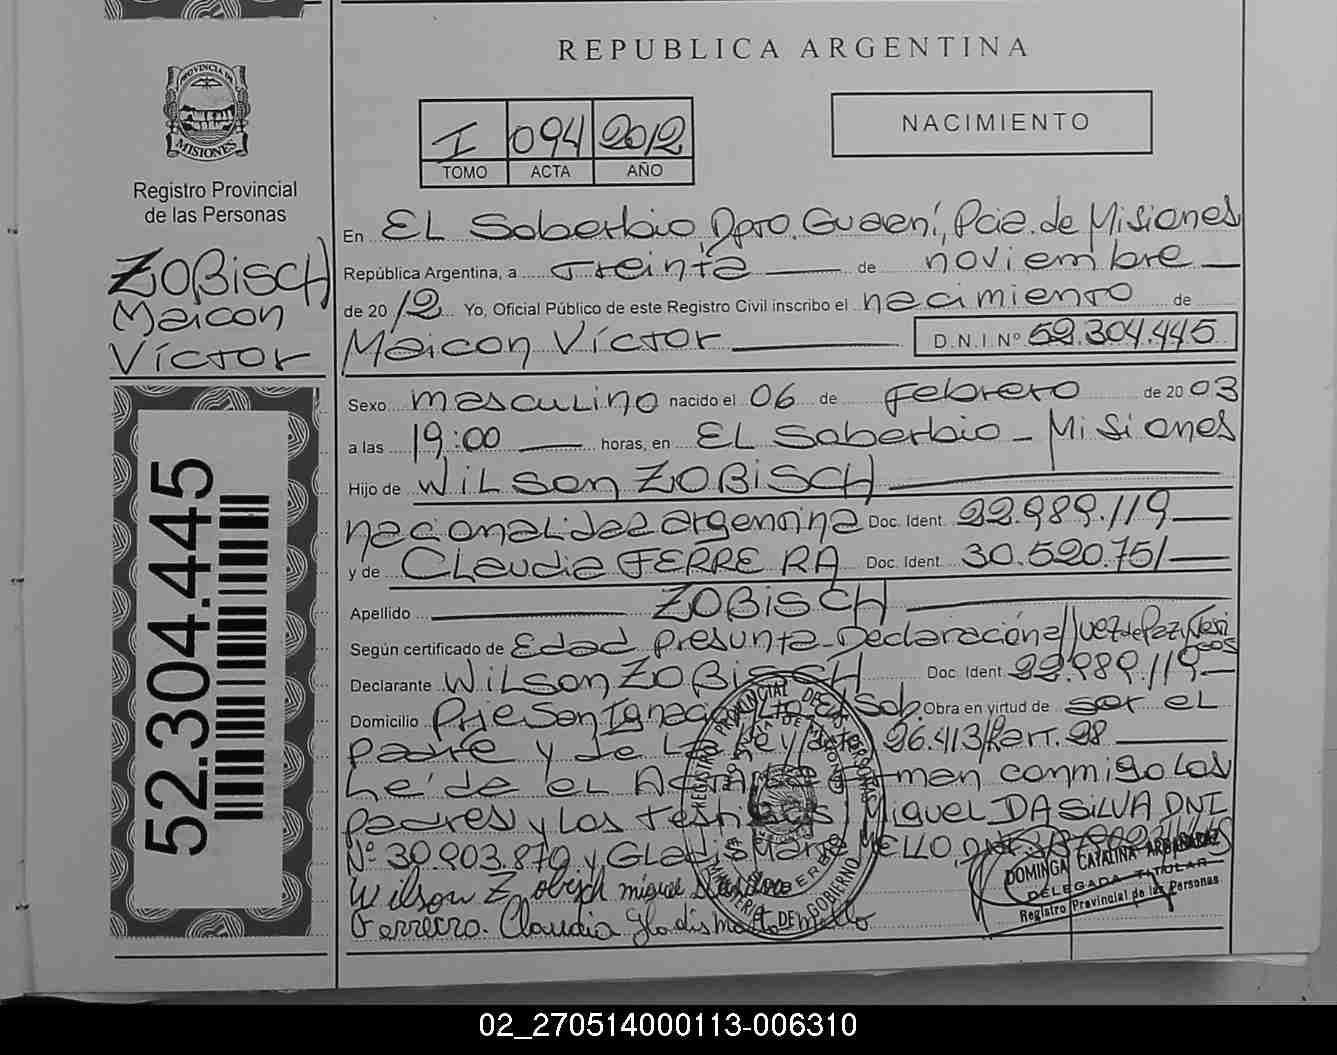 REPUBLICA ARGENTINA
PROVINCIA DE
MISIONES
Registro Provincial
de las Personas
I 094 2012
TOMO ACTA AÑO
NACIMIENTO
ZOBISCH
Maicon
Víctor
52.304.445
En EL Soberbio, Dpto. Guaraní, Pcia. de Misiones
República Argentina, a treinta de noviembre
de 2012 Yo, Oficial Público de este Registro Civil inscribo el nacimiento de
Maicon Víctor D.N.I Nº 52.304.445
Sexo masculino nacido el 06 de febrero de 2003
a las 19:00 horas, en EL Soberbio - Misiones
Hijo de Wilson ZOBISCH
nacionalidad argentina Doc. Ident. 22.989.119
y de Claudia FERRERA Doc. Ident. 30.520.751
Apellido ZOBISCH
Según certificado de Edad presunta - Declaración a/Juez de Paz y Testigos
Declarante Wilson ZOBISCH Doc. Ident. 22.989.119
Domicilio Prje San Ignacio /Sob. Obra en virtud de ser el
padre y de la Ley 26.413/art. 28
Leída el Acta firman conmigo los
padres y los testigos Miguel DA SILVA DNI
Nº 30.903.879 y Gladis MELLO
Wilson Zobisch miguel
Claudia gladis mello
REGISTRO PROVINCIAL DE LAS PERSONAS
MINISTERIO DE GOBIERNO
DOMINGA CATALINA
DELEGADA TITULAR
Registro Provincial de las Personas
02_270514000113-006310